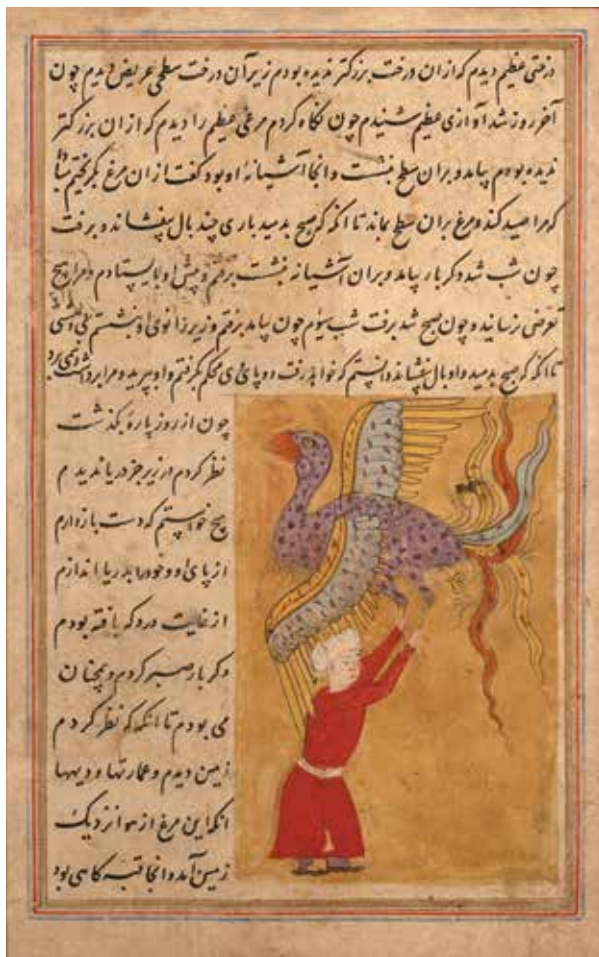 درختی عظیم دیدم که از ان درخت بزرکتر ندیده بودم زیر آن درخت سطحی عریض دیدم چون
آخر روز شد آوازی عظیم شنیدم چون نکاه کردم مرغی عظیم را دیدم که از ان بزرکتر
ندیده بودم بیامد و بران سطح بنشست و انجا آشیانهٔ او بود کفت از ان مرغ بکریختم
که مرا صید کند و مرغ بران سطح بماند تا انکه که صبح بدمید باری چند بال بیفشاند و برفت
چون شب شد دکر بار بیامد و بران آشیانه بنشست برفتم و پیش او بایستادم مرا هیچ
تعرضی نرسانید و چون صبح شد برفت شب سیوم چون بیامد برفتم و زیر زانوی او بنشستم
تا انکه که صبح بدمید و او بال بیفشاند دانستم که خواهد رفت دو پای وی محکم بکرفتم و او بپرید و مرا برداشت
چون از روز پارهٔ بکذشت
نظر کردم در زیر جز دریا ندیدم
هیچ خواستم که دست باز دارم
از پای او و خود را بدریا اندازم
از غایت درد که یافته بودم
دکر بار صبر کردم و همچنان
می بودم تا انکه که نظر کردم
زمین دیدم و عمارتها و دیهها
انکه این مرغ از هوا نزدیک
زمین آمد و انجا قبه کاهی بود